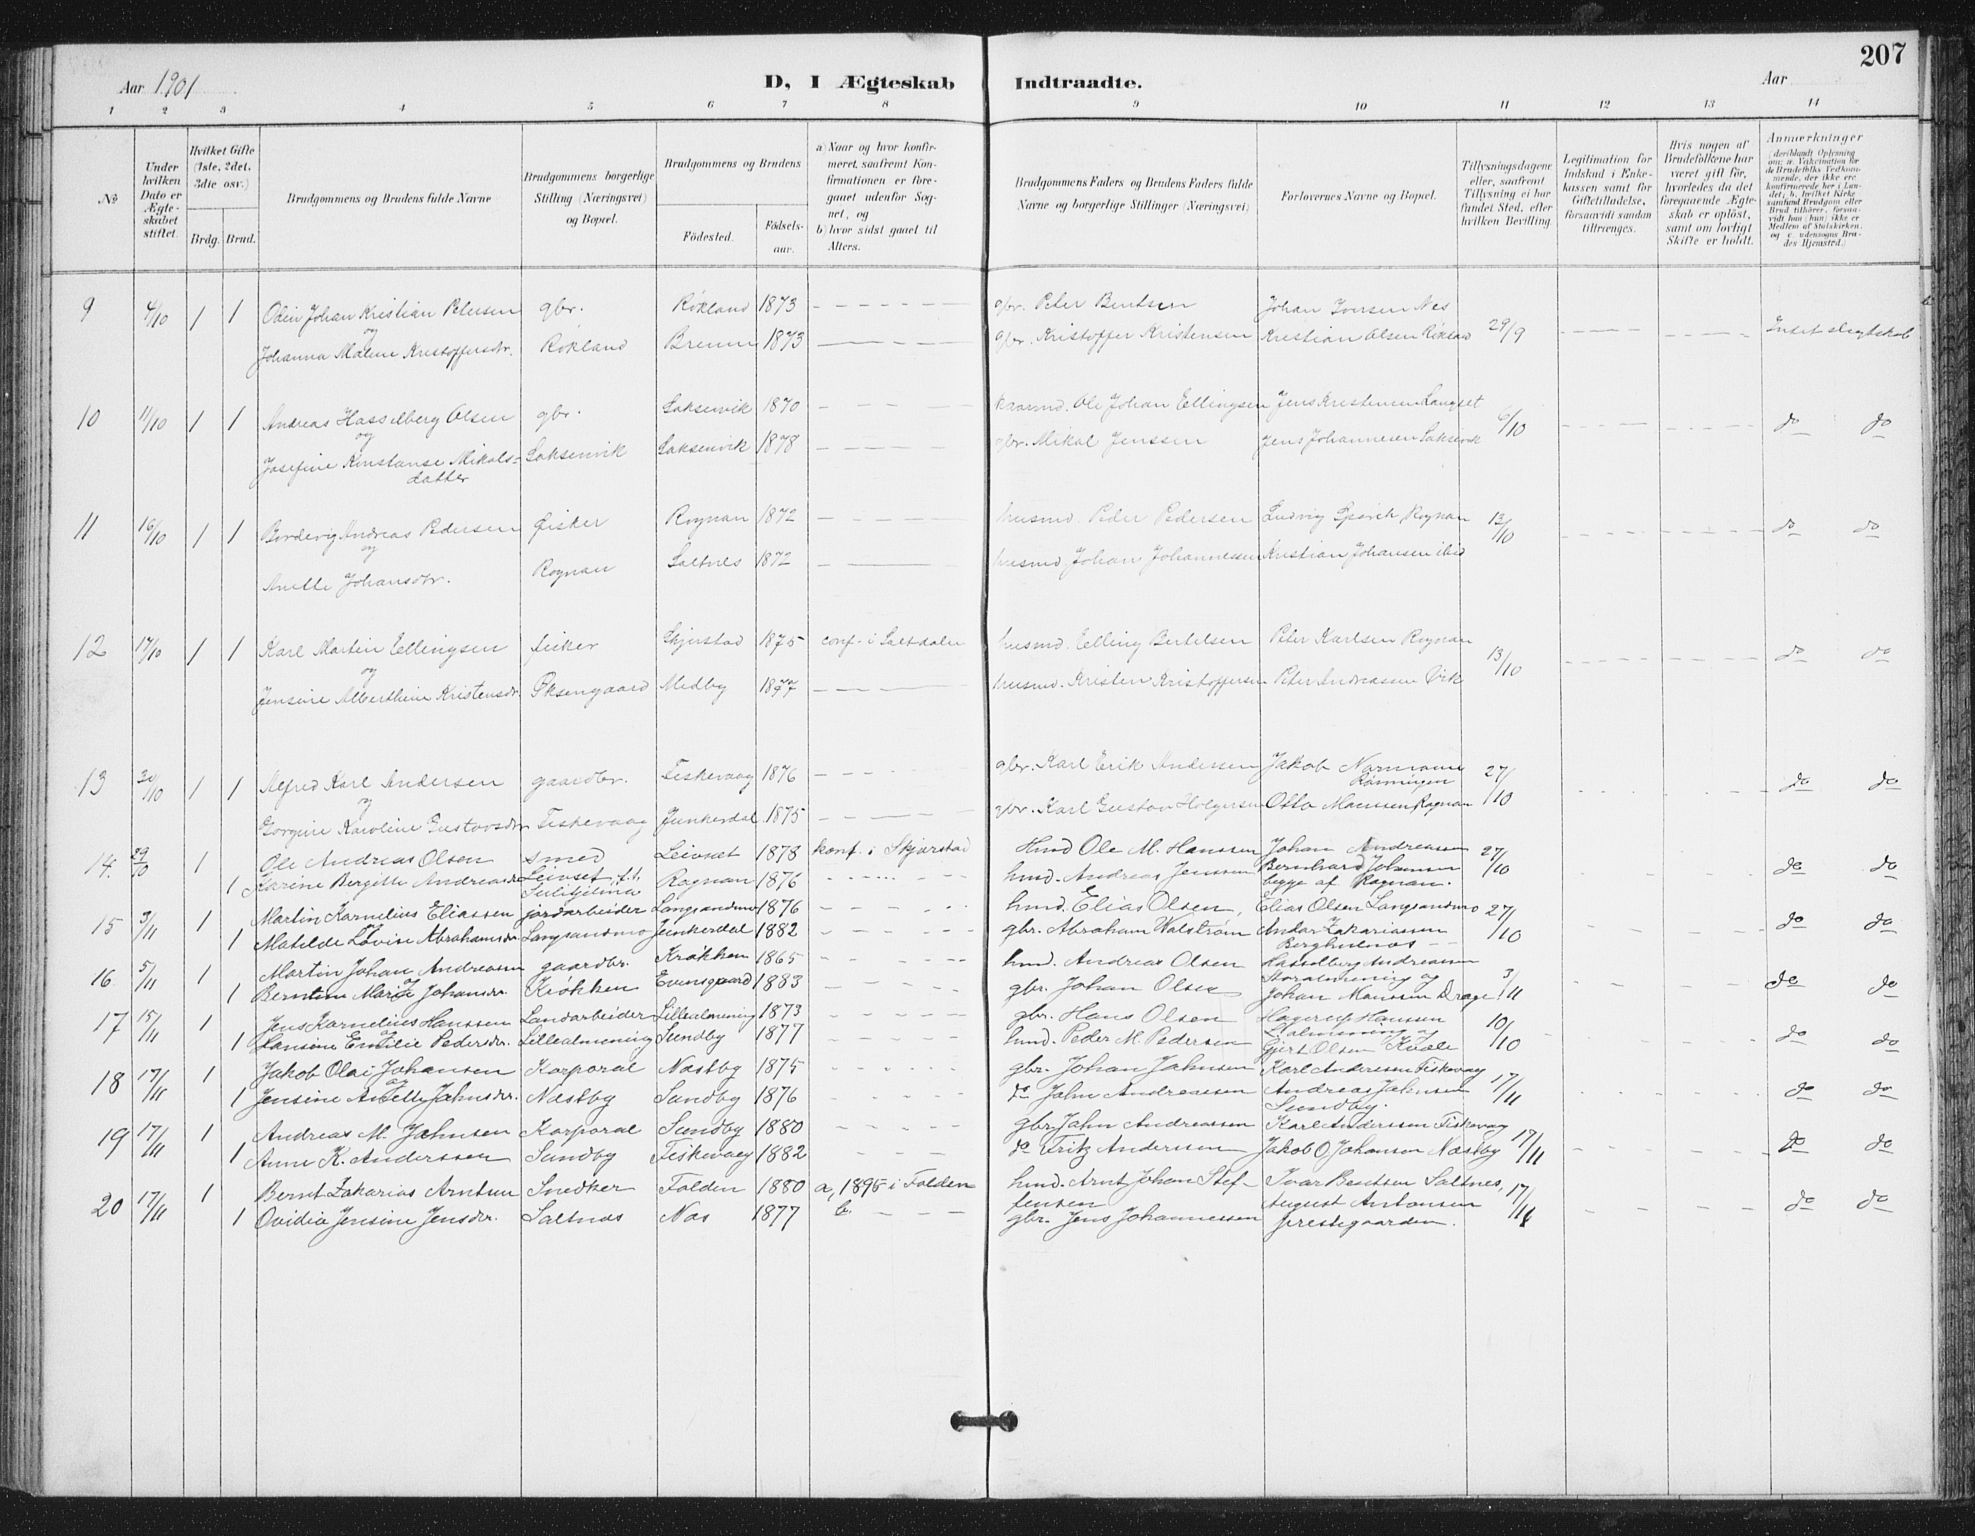 207
Aar 1901 D, I Ægteskab Indtraadte. Aar
1 2 3 4 5 6 7 8 9 10 11 12 13 14
No
Under hvilken Dato er Ægteskabet stiftet.
Hvilket Gifte (1ste, 2det, 3die osv.)
Brdg. Brud.
Brudgommens og Brudens fulde Navne
Brudgommens borgerlige Stilling (Næringsvei) og Bopæl.
Brudgommens og Brudens
Fødested. Fødselsaar.
a) Naar og hvor konfirmeret, saafremt Konfirmationen er foregaaet udenfor Sognet, og
b) hvor sidst gaaet til Alters.
Brudgommens Faders og Brudens Faders fulde Navne og borgerlige Stillinger (Næringsvei)
Forlovernes Navne og Bopæl.
Tillysningsdagene eller, saafremt Tillysning ei har fundet Sted, efter hvilken Bevilling.
Legitimation for Indskud i Enkekassen samt for Giftetilladelse, forsaavidt saadan tiltrænges.
Hvis nogen af Brudefolkene har været gift før, hvorledes da det foregaaende Ægteskab er opløst, samt om lovligt Skifte er holdt.
Anmerkninger
9 4/10 1 1 Odin Johan Kristian Petersen gbr. Rökland 1873 gbr. Peter Bentsen Johan Iversen Nes
og
Johanna Maline Kristoffersdtr. Rökland Brenn 1873 gbr. Kristoffer Kristensen Kristian Olsen Rökland 29/9 Intet slegtskab
10 11/10 1 1 Andreas Hasselberg Olsen gbr. Saksenvik 1870 kaarmd. Ole Johan Ellingsen Jens Kristensen Langset
og
Josefine Konstanse Mikals= Saksenvik Saksenvik 1878 gbr. Mikal Jenssen Jens Johannesen Saksenvik 6/10 do do
datter
11 16/10 1 1 Andreas Pedersen fisker Rognan 1872 husmd. Peder Pedersen Ludvig Rognan 13/10 do do
og
Anette Johansdtr. Rognan Saltnes 1872 husmd. Johan Johannessen Kristian Johansen ibid
12 17/10 1 1 Karl Martin Ellingsen fisker Skjerstad 1875 conf. i Saltdalen husmd. Elling Bertelsen Peter Karlsen Rognan
og
Jensine Alberthine Kristensdr. Öksengaard Medby 1877 husmd. Kristen Kristoffersen Peter Andreassen 13/10 do do
13 1 1 Alfred Karl Andersen gaardbr. Fiskevaag 1876 gbr. Karl Erik Andersen Jakob Normann
og
Gorgine Karoline Gustavsdtr Fiskevaag Junkerdal 1875 gbr. Karl Gustav Holgersen Otto Monssen Rognan 27/10 do do
14. 29/10 1 Ole Andreas Olsen smed Leivset 1878 konf. i Skjerstad Hmd Ole M. Hanssen Johan Andreassen
1 Karine Bergitte Andreasdr Leivset, f.t. Sulitjelma Rognan 1876 hmd. Andreas Jenssen Bernhard Johansen 27/10 do do
begge af Rognan.
15 3/11 1 Martin Kornelius Eliassen jordarbeider Langsandmo 1876 hmd. Elias Olsen, Elias Olsen Langsandmo
og
1 Matilde Lovise Abrahamsdr. Langsandmo Junkerdal 1882 gbr. Abraham Walstrøm Andor Zakariassen 27/10 do do
Berghulnes
16 5/11 1 Martin Johan Andreassen gaardbr. Krøkken 1865 hmd. Andreas Olsen Hasselberg Andreassen
og
1 Berntine Marie Johansdr. Krøkken Evensgaard 1883 gbr. Johan Olsen Storalmening og 3/11 do do
Johan Monssen Drage
17 15/11 1 Jens Kornelius Hanssen Landarbeider Lillealmening 1873 gbr. Hans Olsen Hagerup Hanssen
og
1 Hansine Emilie Pedersdr. Lillealmening Sundby 1877 hmd. Peder M. Pedersen L.almening og 10/10 do do
Gjert Olsen Kvæle
18 17/11 1 Jakob Olai Johansen Korporal Næstby 1875 gbr. Johan Jahnsen Karl Anderssen Fiskevaag
og
1 Jensine Anette Jahnsdr. Næstby Sundby 1876 do Jahn Andreassen Andreas Jahnsen 17/11 do do
Sundby.
19 17/11 1 Andreas M. Jahnsen Korporal Sundby 1880 gbr. Jahn Andreassen Karl Anderssen Fiskevaag
1 Anne K. Anderssen Sundby Fiskevaag 1882 do Fritz Anderssen Jakob O Johansen Næstby 17/11 do do
20 17/11 1 Bernt Zakarias Arntsen Snedker Folden 1880 a, 1895 i Folden hmd. Arnt Johan Stef- Ivar Bentsen Saltnes,
fensen August Antonsen
1 Ovidia Jensine Jensdr. Saltnæs Næs 1877 b. gbr. Jens Johannessen prestegaarden. 17/11 do do